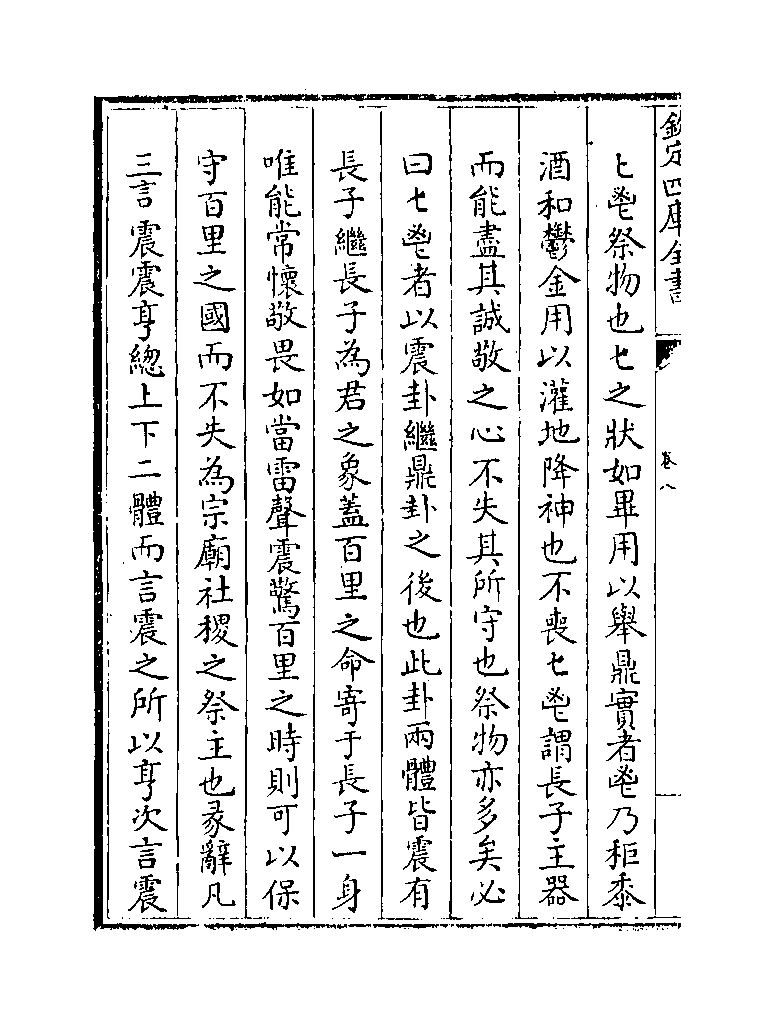 欽定四庫全書
卷八
匕鬯祭物也匕之狀如畢用以舉鼎實者鬯乃秬黍
酒和鬱金用以灌地降神也不喪匕鬯謂長子主器
而能盡其誠敬之心不失其所守也祭物亦多矣必
曰匕鬯者以震卦繼鼎卦之後也此卦兩體皆震有
長子繼長子為君之象蓋百里之命寄于長子一身
唯能常懷敬畏如當雷聲震驚百里之時則可以保
守百里之國而不失為宗廟社稷之祭主也彖辭凡
三言震震亨總上下二體而言震之所以亨次言震